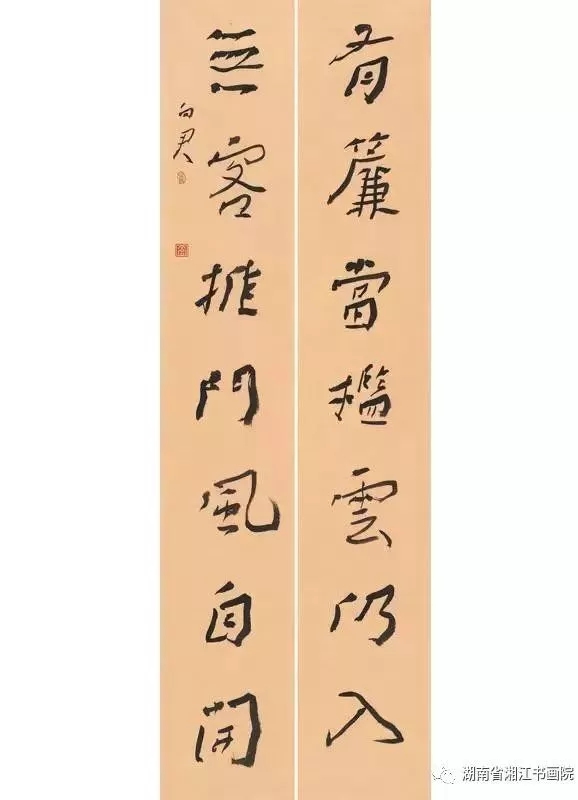 有簾當檻雲仍入
無客推門風自開
向君
湖南省湘江书画院